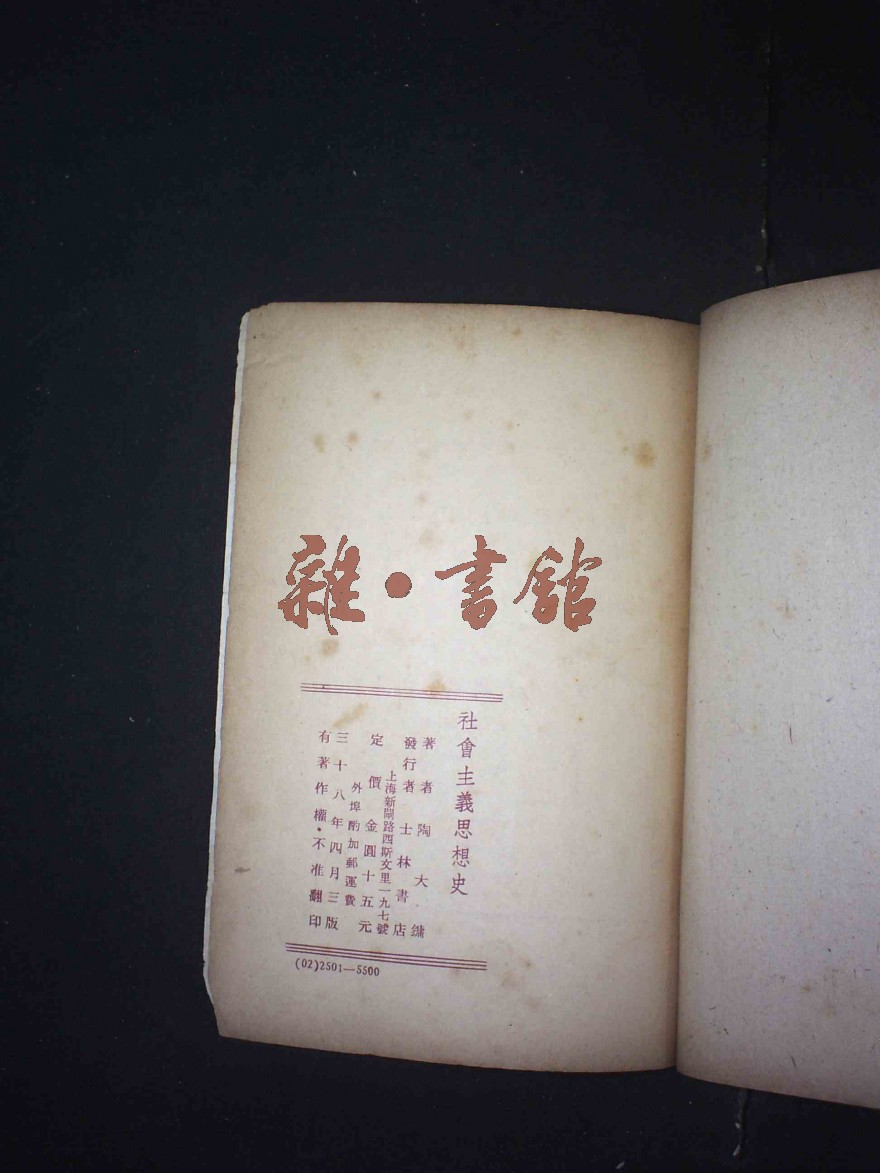 雜·書館
社會主義思想史
著者 陶大鏞
發行者 士林書店
上海新閘路西斯文里一九七號
定價 金圓十五元
外埠酌加郵運費
三十八年四月三版
有著作權·不准翻印
(02)2501—5500